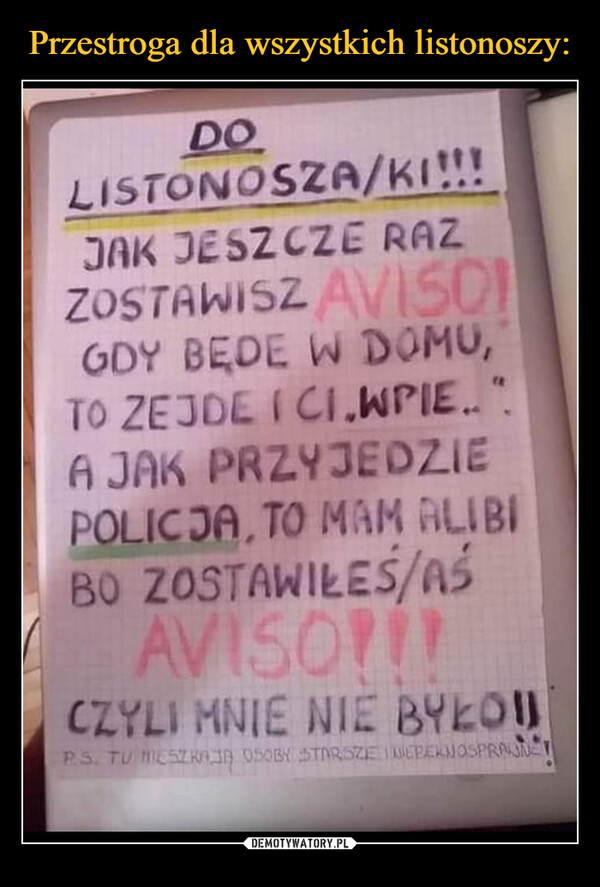 Przestroga dla wszystkich listonoszy:
DO
LISTONOSZA/KI!!!
JAK JESZCZE RAZ
ZOSTAWISZ AVISO!
GDY BĘDE W DOMU,
TO ZEJDE I CI„WPIE.. ".
A JAK PRZYJEDZIE
POLICJA, TO MAM ALIBI
BO ZOSTAWIŁEŚ/AŚ
AVISO!!!
CZYLI MNIE NIE BYŁO!!
P.S. TU MIESZKAJĄ OSOBY STARSZE I NIEPEŁNOSPRAWNE!
DEMOTYWATORY.PL